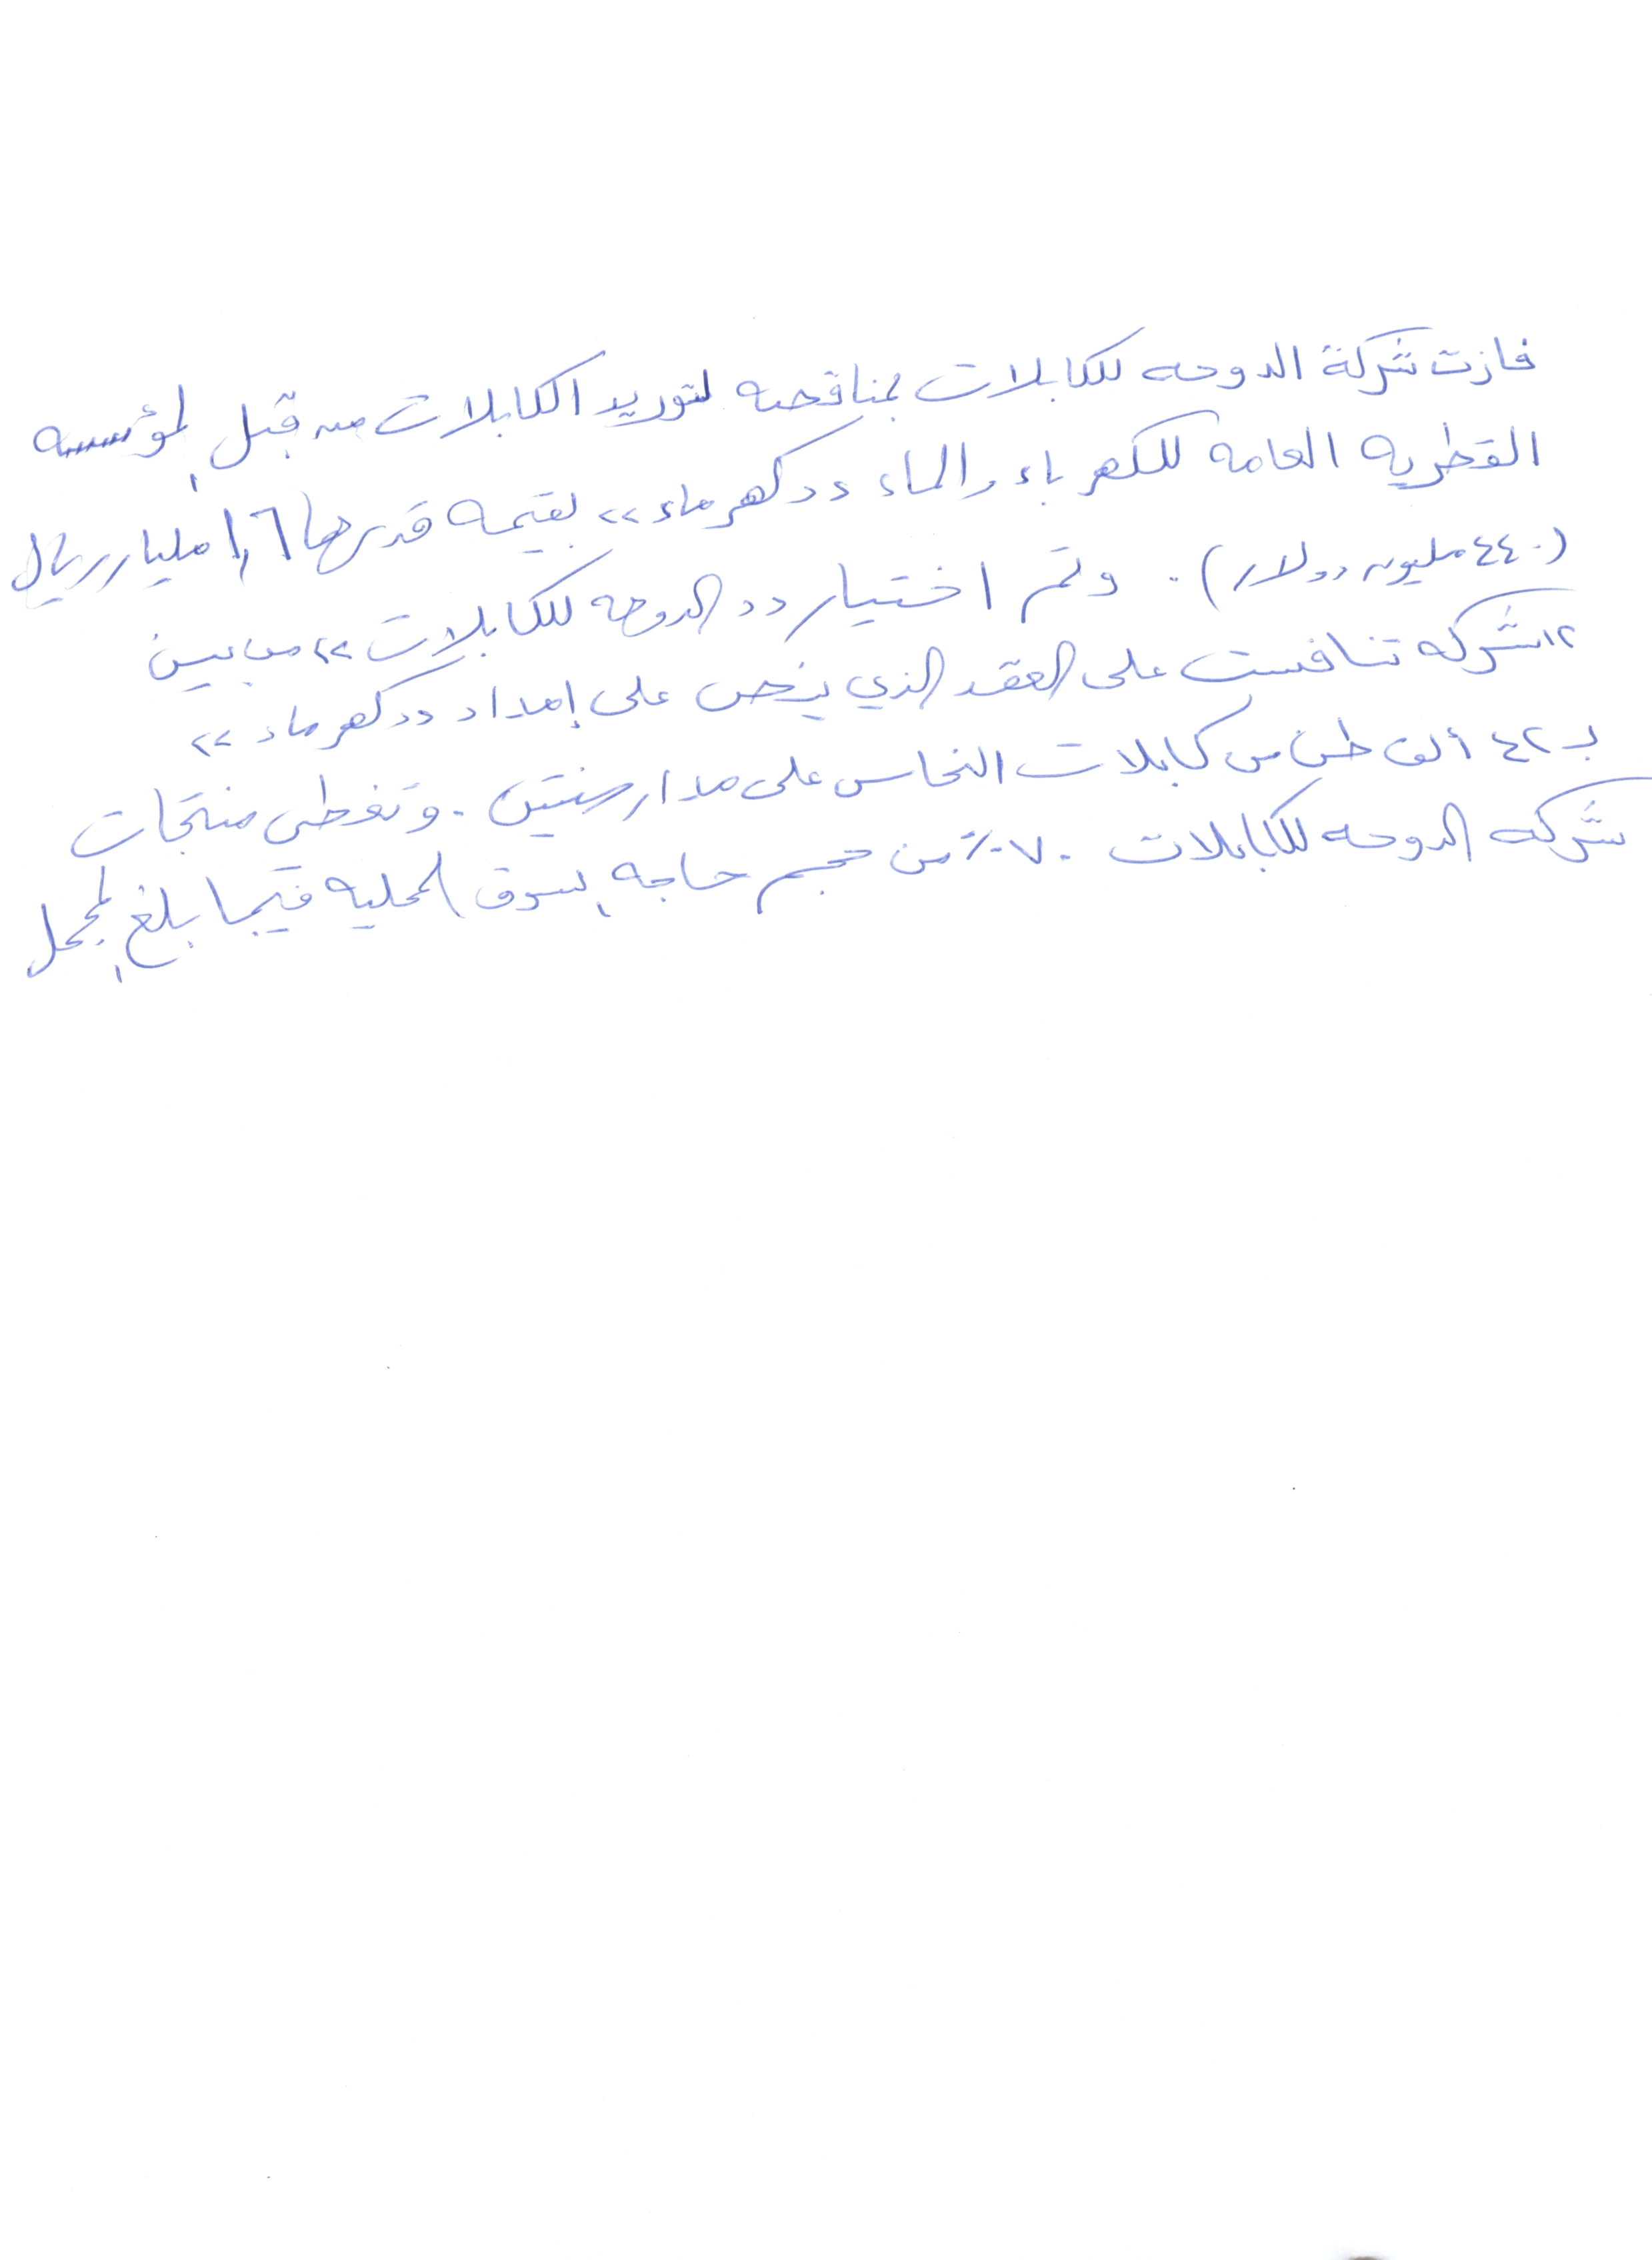 فازت شركة الدوحه للكابلات بمناقصه لتوريد الكابلات من قبل المؤسسه
القطريه العامه للكهرباء والماء "كهرماء" بقيمه قدرها ١,٦ مليار ريال
(٤٤٠ مليون دولار). وتم اختيار "الدوحه للكابلات" من بين
١٢ شركه تنافست على العقد الذي ينص على إمداد "كهرماء"
بـ ٤٢ ألف طن من كابلات النحاس على مدار سنتين. وتغطى منتجات
شركه الدوحه للكابلات ٧٠٪ من حجم حاجه السوق المحليه فيما بلغ المجمل